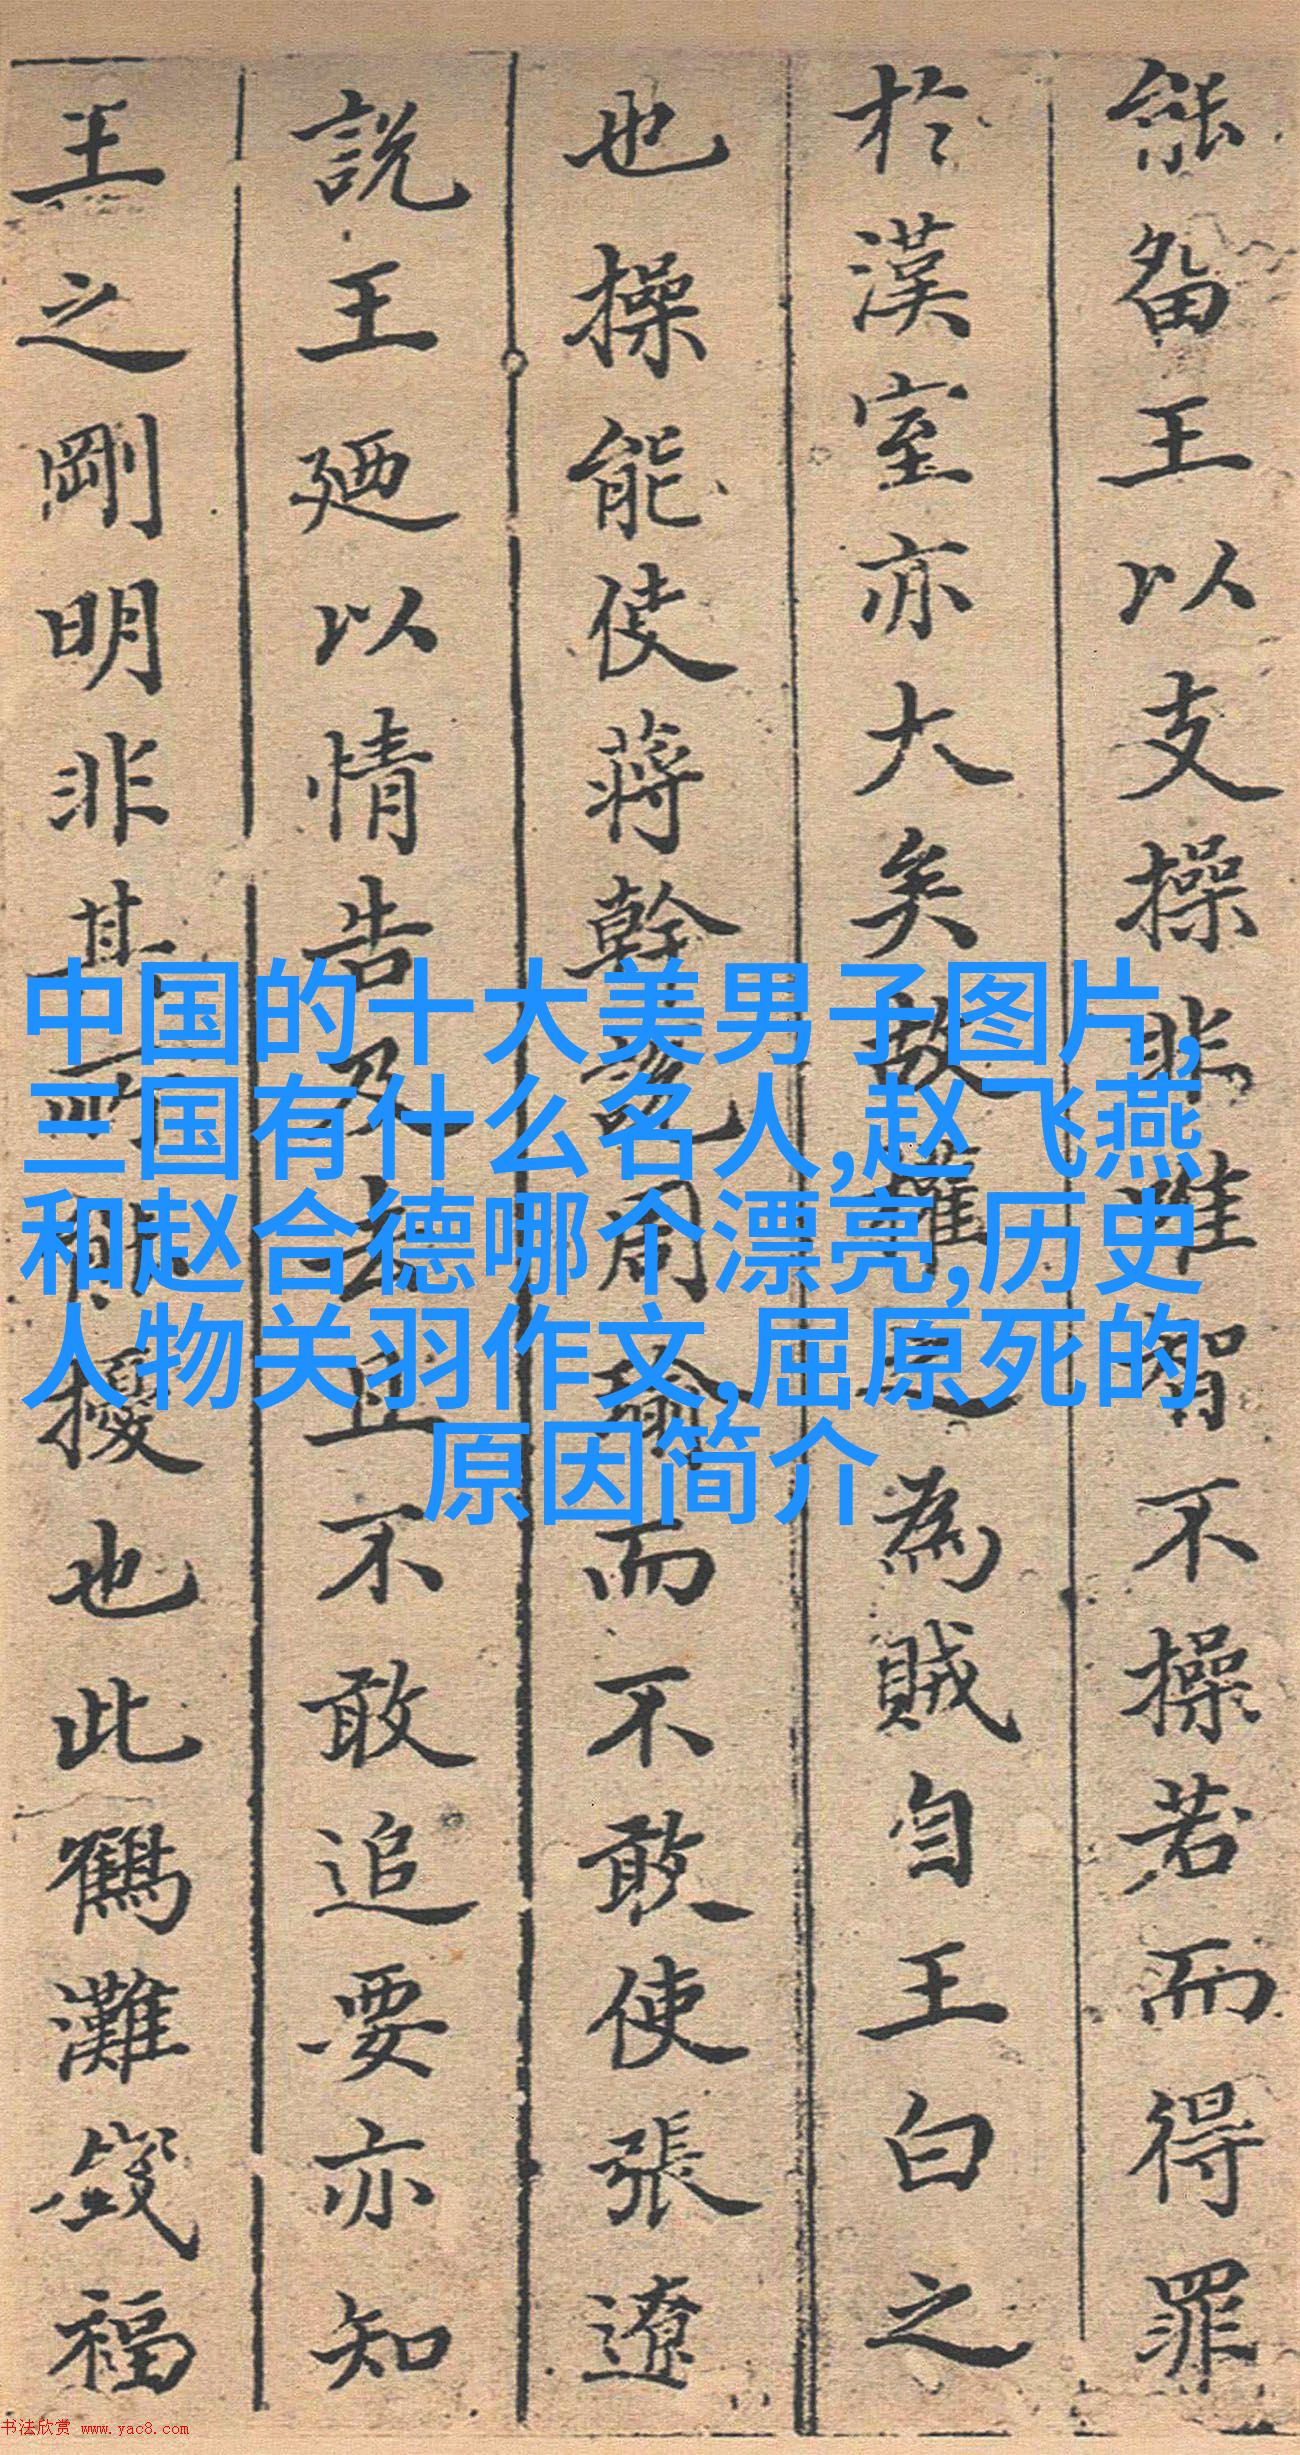 能留王以支操非惟智不操若而得罪
於漢室亦大矣故權之為賊自王白之
也操能使蔣幹說周瑜而不敢使張遼
說王廼以情告及去且不敢追要亦知
王之剛明非其所擾也此鶴灘福
中国的十大美男子图片,
三国有什么名人,赵飞燕
和赵合德哪个漂亮,历史
人物关羽作文,屈原死的
原因简介
书法欣赏 www.yac8.com